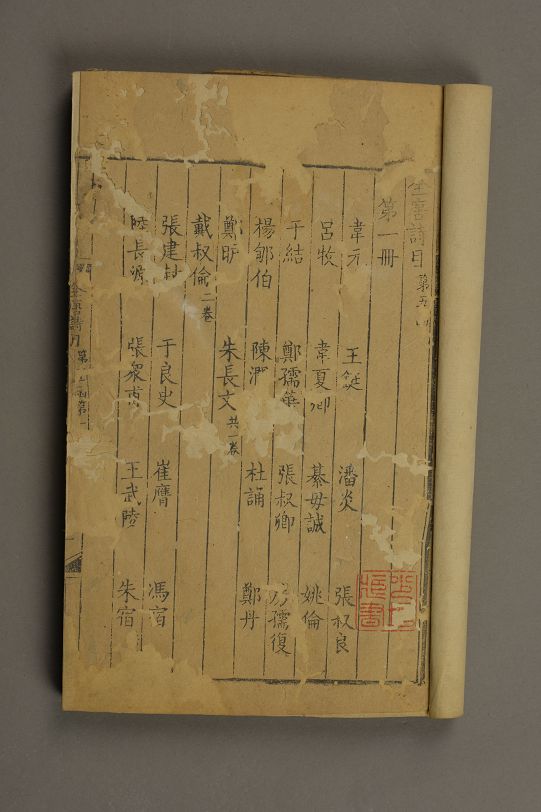 全唐詩目 第五
第一冊
韋元 王綖 潘炎 張叔良
呂牧 韋夏卿 綦毋誠 姚倫
于結 鄭孺華 張叔卿 孺復
楊郇伯 陳潤 杜誦 鄭丹
鄭昈 朱長文 共一卷
戴叔倫 二卷
張建封 于良史 崔膺 馮宿
陸長源 張眾甫 王武陵 朱宿
全唐詩目 第